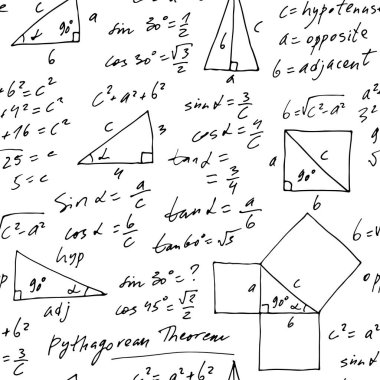 c
a
α 90°
b
sin 30° = 1/2
cos 30° = √3/2
c
b
a
c = hypotenuse
a = opposite
b = adjacent
+b² = c²
+4² = c²
+16 = c²
√25 = c
5 = c
c² = a² + b²
c
3
α
4
sin α = 3/c
cos α = 4/c
tan α =
= 3/4
b = √c² - a²
a²
3²
a
c
90°
b
sin α = a/c
cos α = b/c
tan α = a/b
tan 60° = √3
√c² - a²
hyp
90° α
adj
sin 30° = ?
cos 45° = √2/2
a
c
90° α
b
b = √
op
+b²
= 3/c
Pythagorean Theorem
c² =
sin α
c² = a² + b²